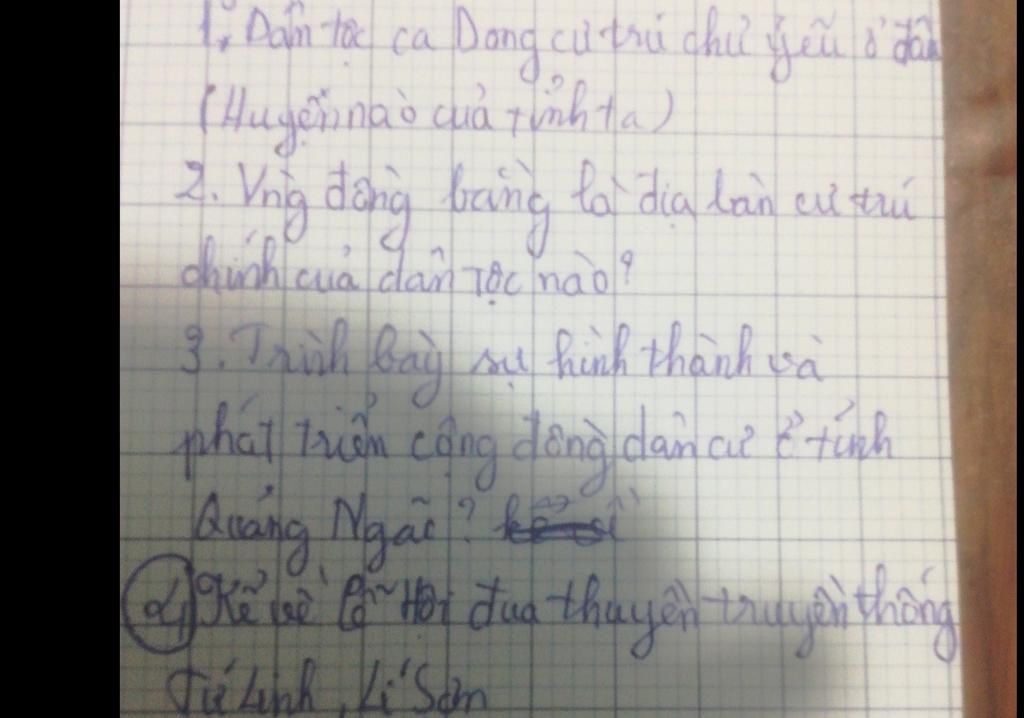 1. Dân tộc ca Dong cư trú chủ yếu ở đâu
(Huyện nào của tỉnh ta)
2. Vng đồng bằng là địa bàn cư trú
chính của dân tộc nào?
3. Trình bày sự hình thành và
phát triển cộng đồng dân cư ở tỉnh
Quảng Ngãi?
Kể về lễ Hội đua thuyền truyền thống
Tứ Linh, Lí Sơn